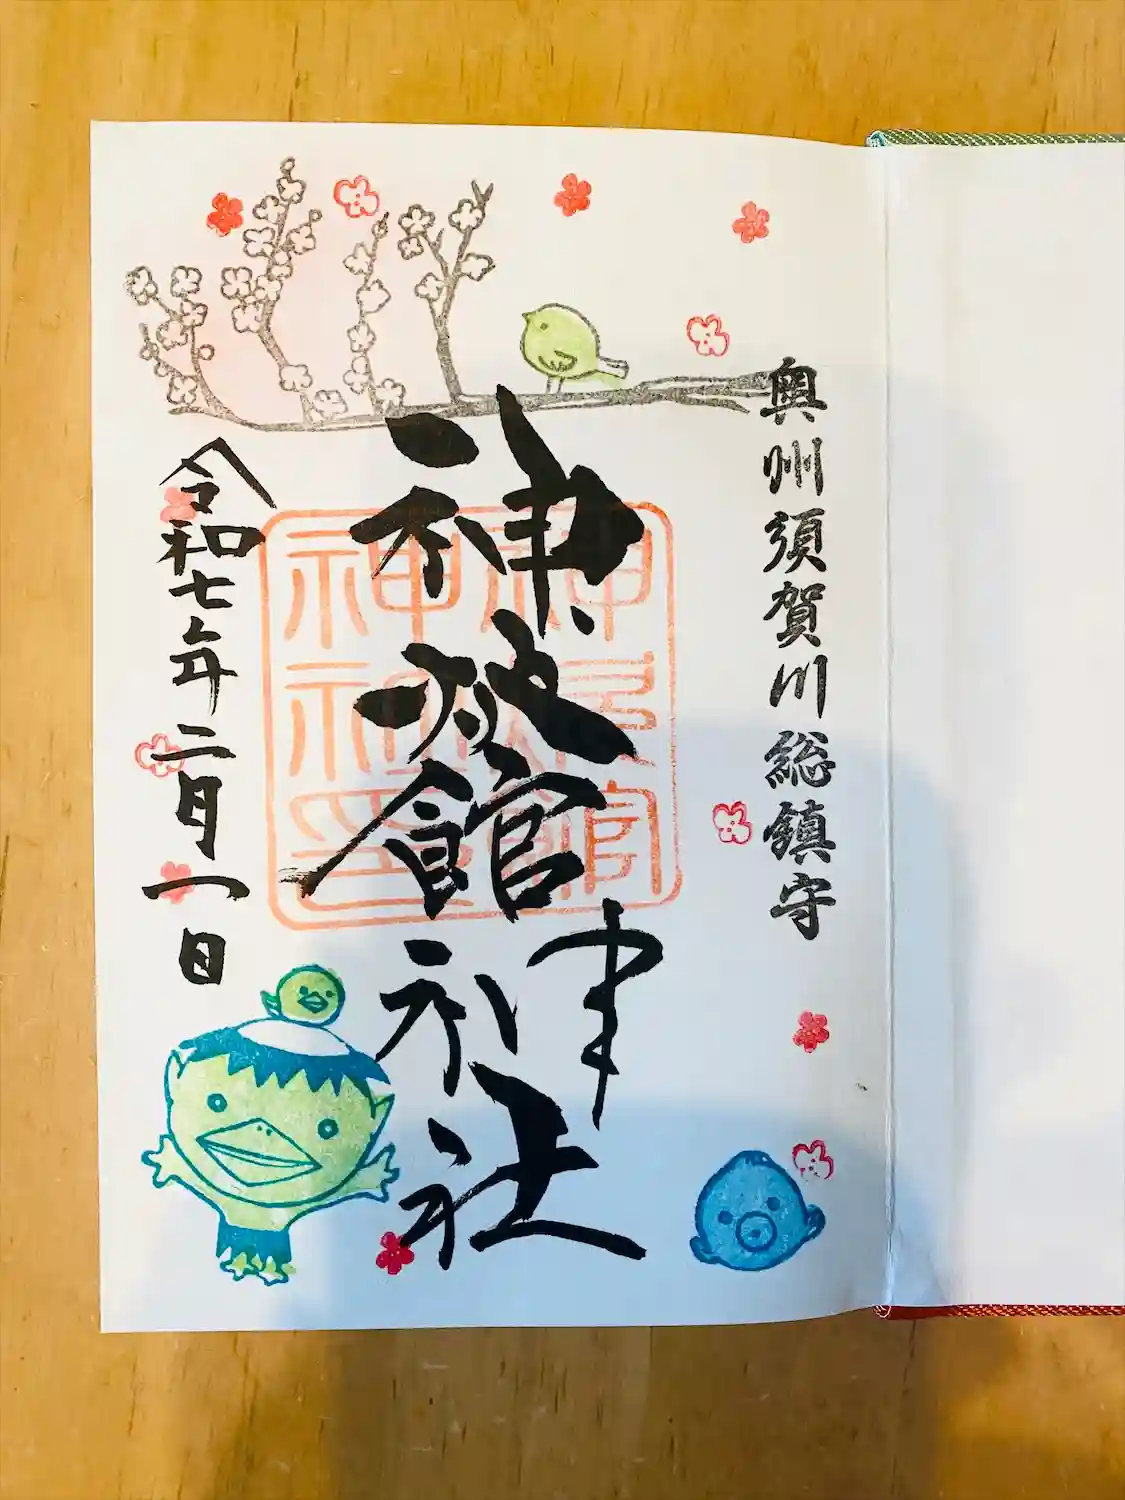 奥州須賀川総鎮守
神炊館神社
令和七年二月一日
神社印